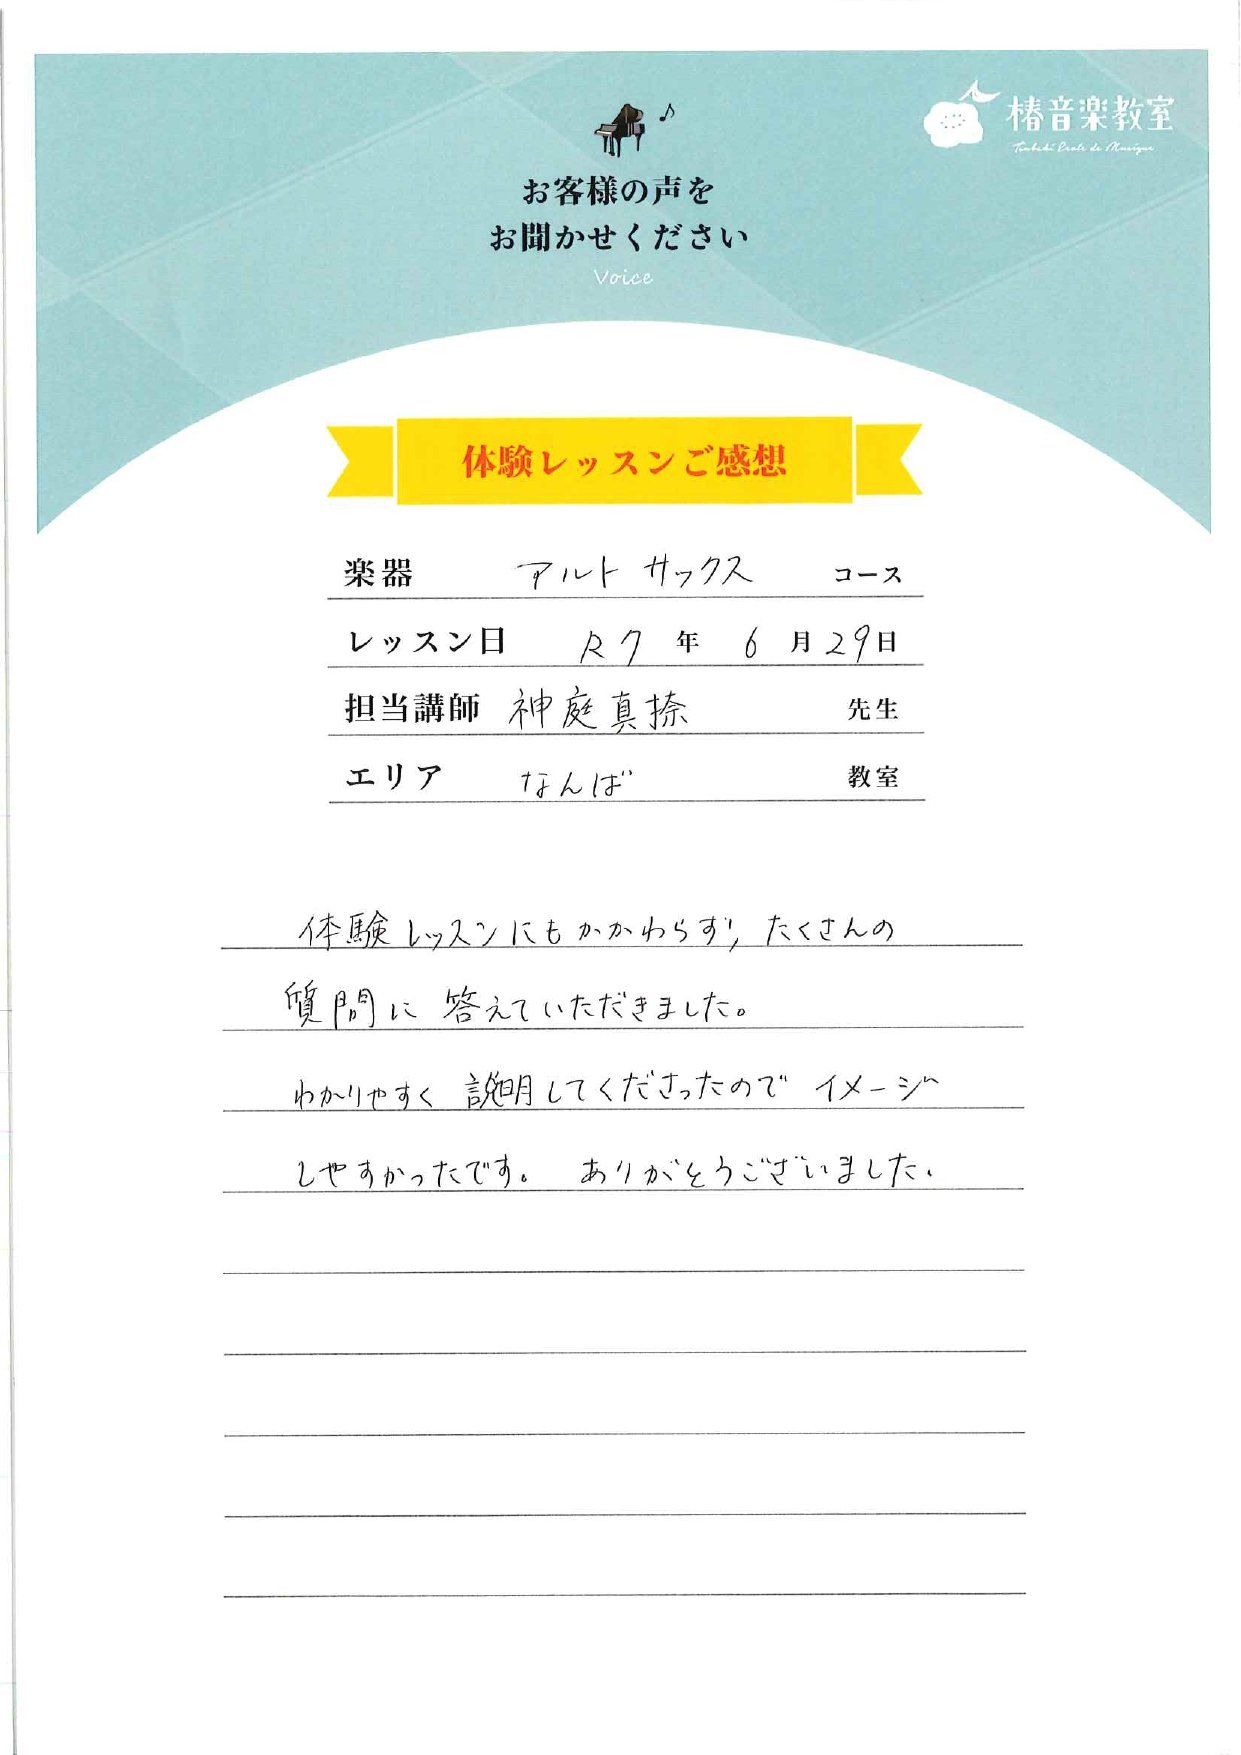 椿音楽教室
Tsubaki Ecole de Musique
お客様の声を
お聞かせください
Voice
体験レッスンご感想
楽器 アルトサックス コース
レッスン日 R7年 6月29日
担当講師 神庭真捺 先生
エリア なんば 教室
体験レッスンにもかかわらず、たくさんの
質問に答えていただきました。
わかりやすく説明してくださったのでイメージ
しやすかったです。 ありがとうございました。